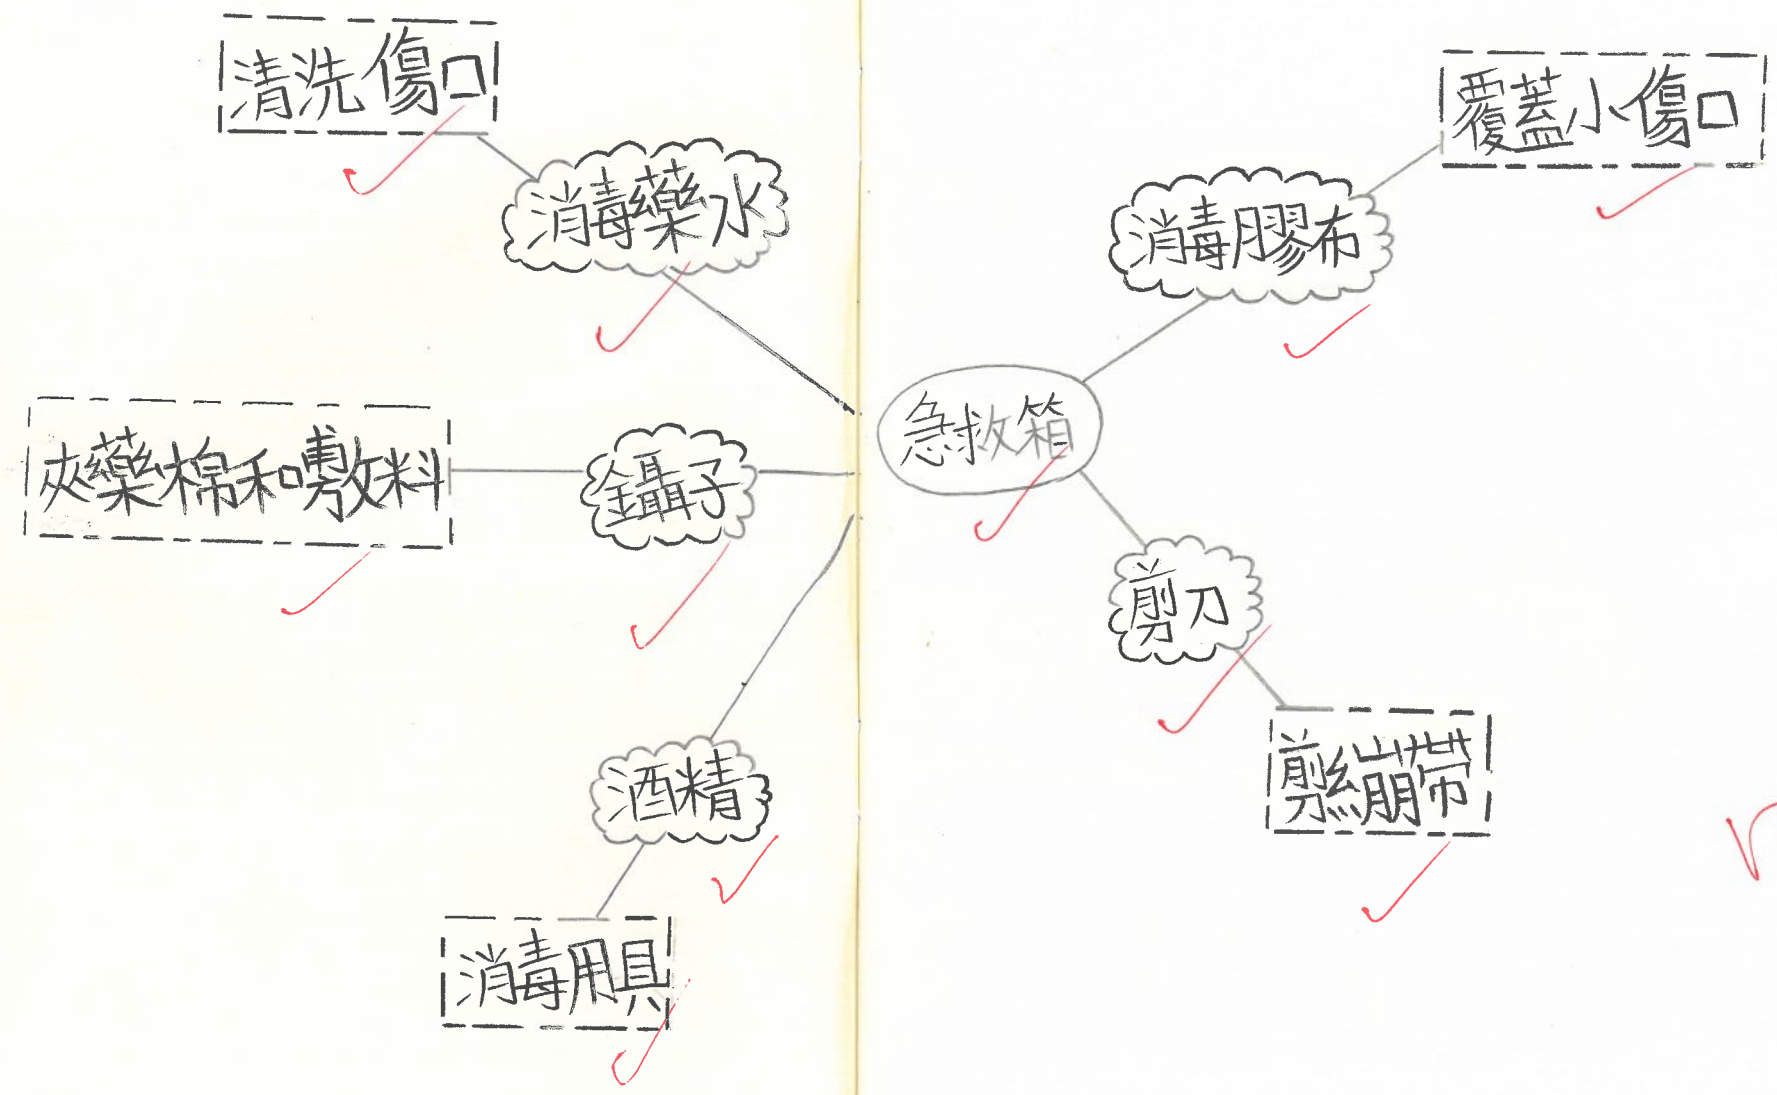 清洗傷口
消毒藥水
夾藥棉和敷料
鑷子
酒精
消毒用具
急救箱
消毒膠布
覆蓋小傷口
剪刀
剪繃帶